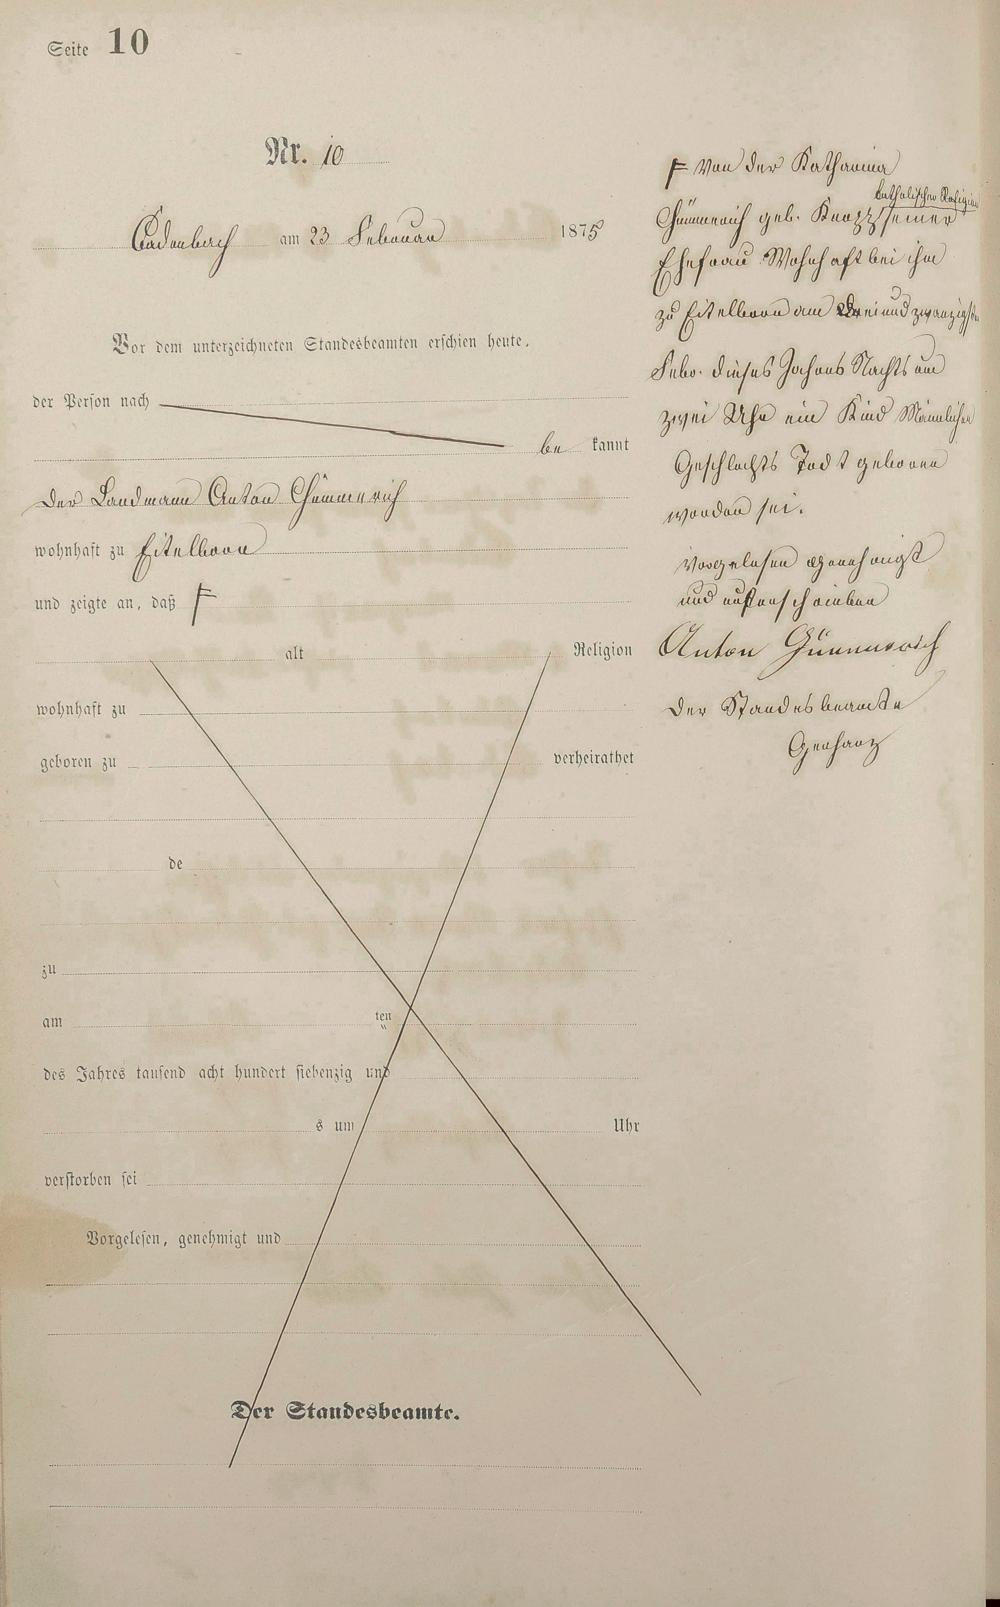 Seite 10
Nr. 10
Cadenbach am 23 Februar 1875
Vor dem unterzeichneten Standesbeamten erschien heute,
der Person nach
be kannt
der Landmann Anton Gümmerich
wohnhaft zu Eitelborn
und zeigte an, daß F
alt Religion
wohnhaft zu
geboren zu verheirathet
de
zu
am ten
des Jahres tausend acht hundert siebenzig und
s um Uhr
verstorben sei
Vorgelesen, genehmigt und
Der Standesbeamte.
F von der Katharina
katholischer Religion
Gümmerich geb. seiner
Ehefrau Wohnhaft bei ihm
zu Eitelborn am Dreiundzwanzigsten
Febr. dieses Jahres Nachts um
zwei Uhr ein Kind Männlichen
Geschlechts Todt geboren
worden sei.
vorgelesen genehmigt
und unterschrieben
Anton Gümmerich
Der Standesbeamte
Gerharz